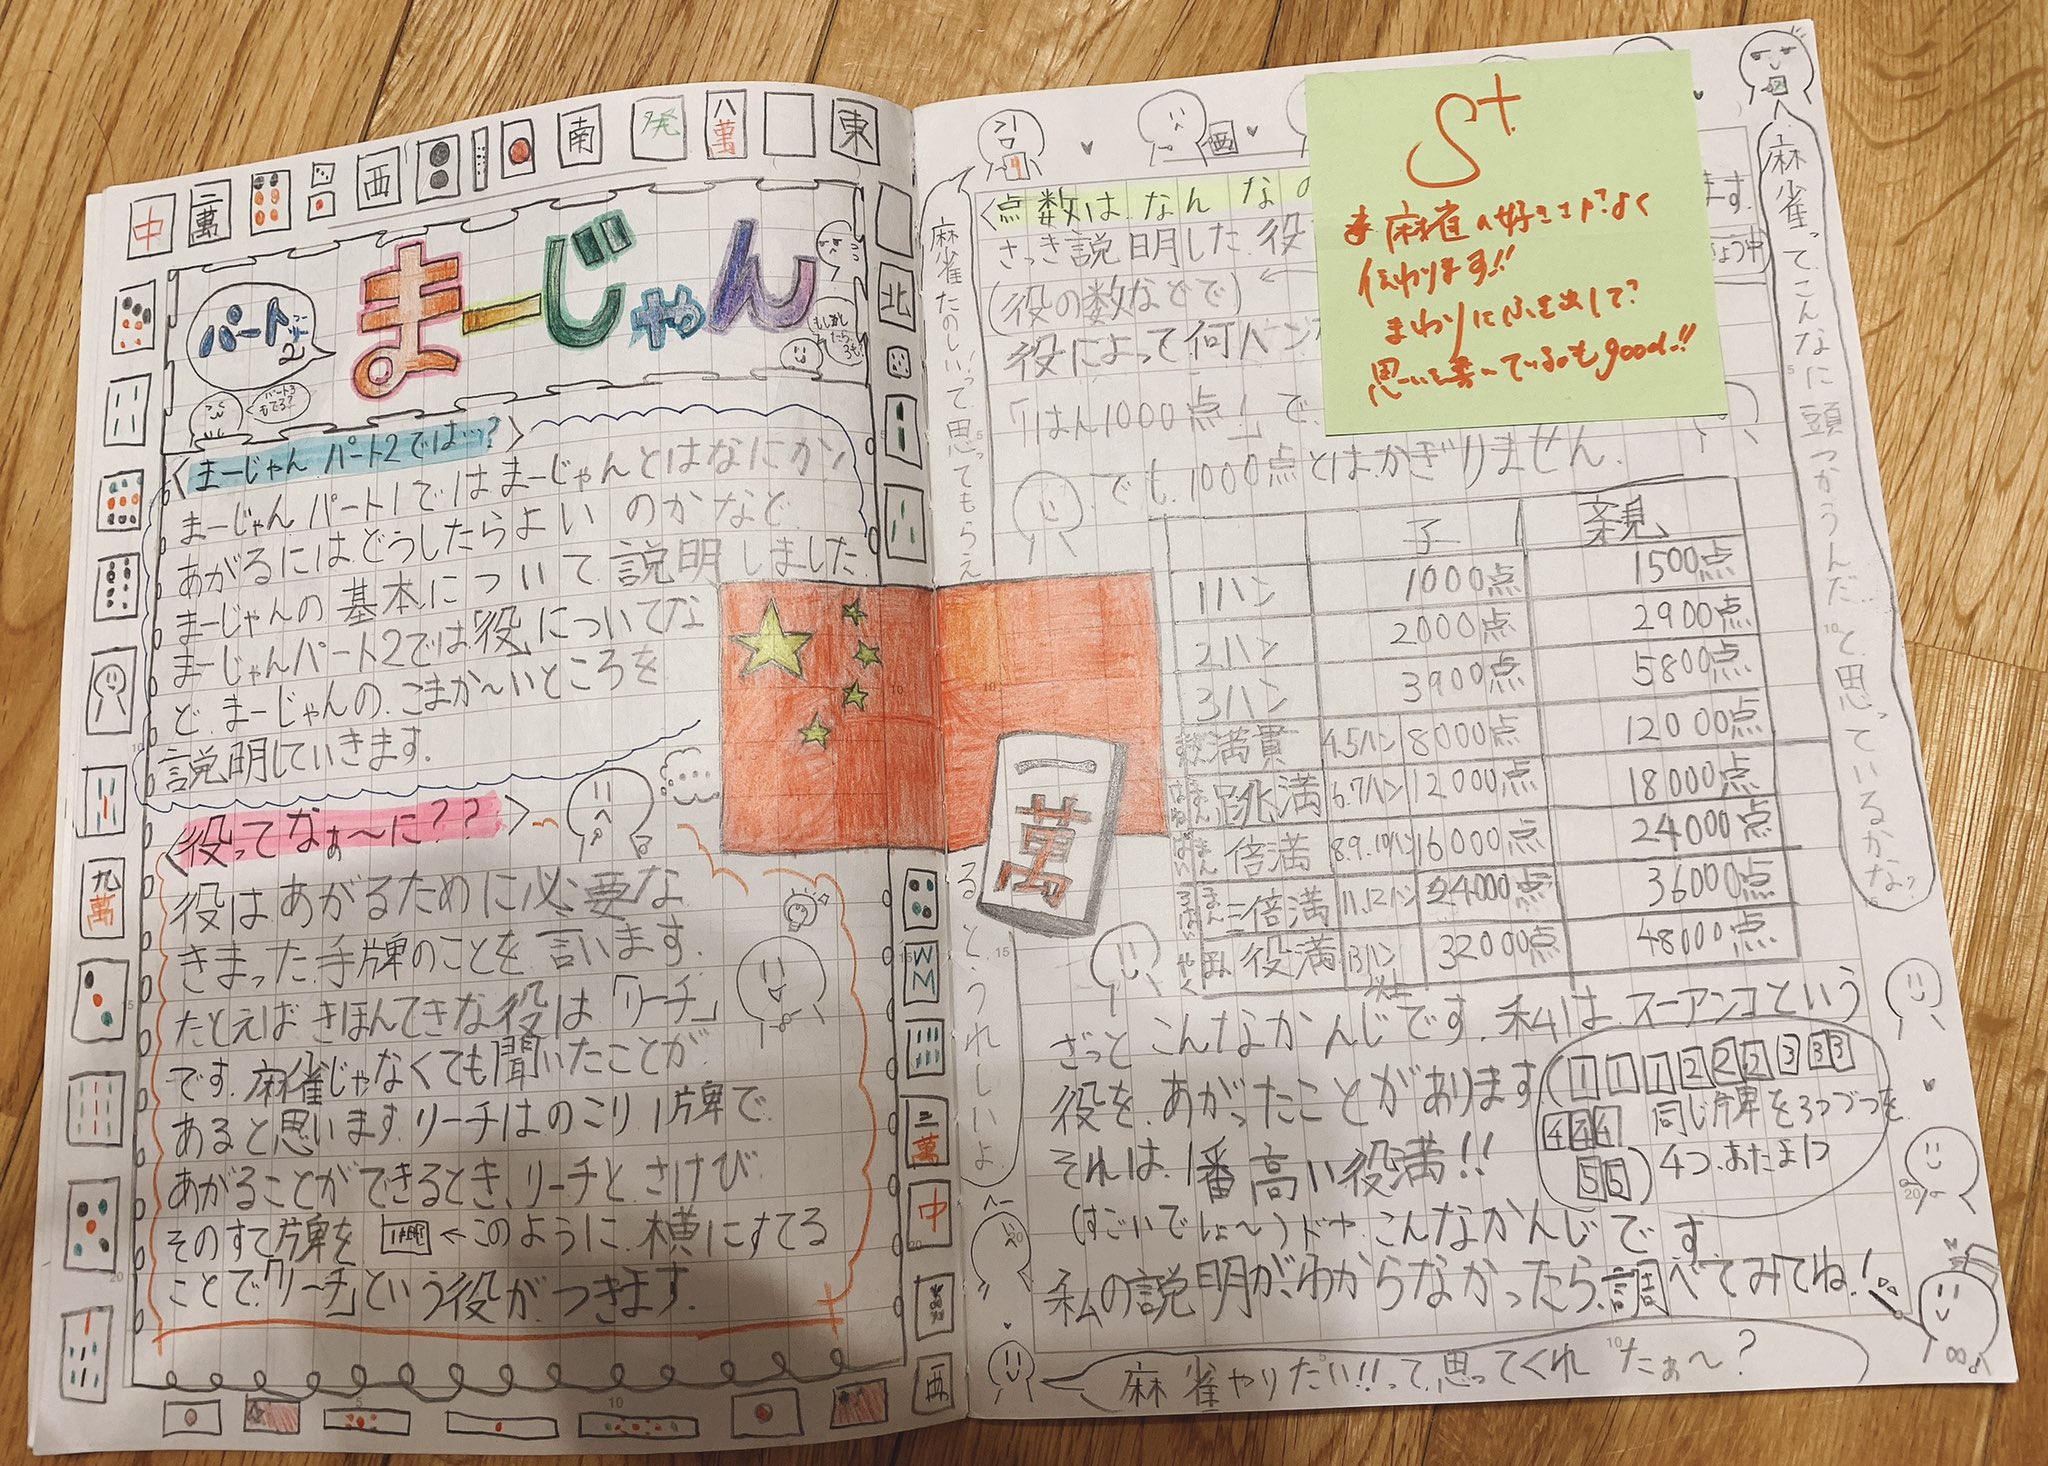 中
二萬
西
南
発
八萬
東
北
パート2
まーじゃん
パート3もでる?
〈まーじゃん パート2では…?〉
まーじゃん パート1では まーじゃんとはなにか、
あがるにはどうしたらよい のか など
まーじゃんの 基本について 説明 しました。
まーじゃんパート2では「役」についてな
ど、まーじゃんの、こまか〜いところを
説明していきます。
〈役ってなぁ〜に??〉
役は あがるために 必要な
きまった 手牌のことを 言います。
たとえば きほんてきな 役は 「リーチ」
です。麻雀じゃなくても 聞いたことが
あると思います。リーチは のこり 1牌で
あがることができるとき、リーチと さけび
そのすて牌を ←このように 横にすてる
ことで「リーチ」という役が つきます。
九萬
三萬
中
西
一萬
西
S+
麻雀の好きさが よく
伝わります!!
まわりに ふき出しで
思いを書いているのもgood!!
〈点数は なん なの
ます。
さっき説明した 役
(役の数などで)←
役によって何ハン
「1はん1000点」で、
でも、1000点とはかぎりません。
子 親
1ハン 1000点 1500点
2ハン 2000点 2900点
3ハン 3900点 5800点
満貫 4.5ハン 8000点 12000点
跳満 6.7ハン 12000点 18000点
倍満 8.9.10ハン 16000点 24000点
三倍満 11.12ハン 24000点 36000点
役満 13ハン以上 32000点 48000点
ざっと こんなかんじです。私は スーアンコという
役を、あがったことがあります
それは 1番 高い役満!!
1 1 1 2 2 2 3 3 3
4 4 4 同じ牌を3つづつを
5 5 4つ、あたま1つ
(すごいでしょ〜)ドヤ こんなかんじです
私の説明が、わからなかったら、調べてみてね!
麻雀やりたい!!って 思ってくれ たぁ〜?
麻雀たのしい、って思ってもらえ
ると、うれしいよ
麻雀って、こんなに 頭つかうんだ、と、思っているかな?